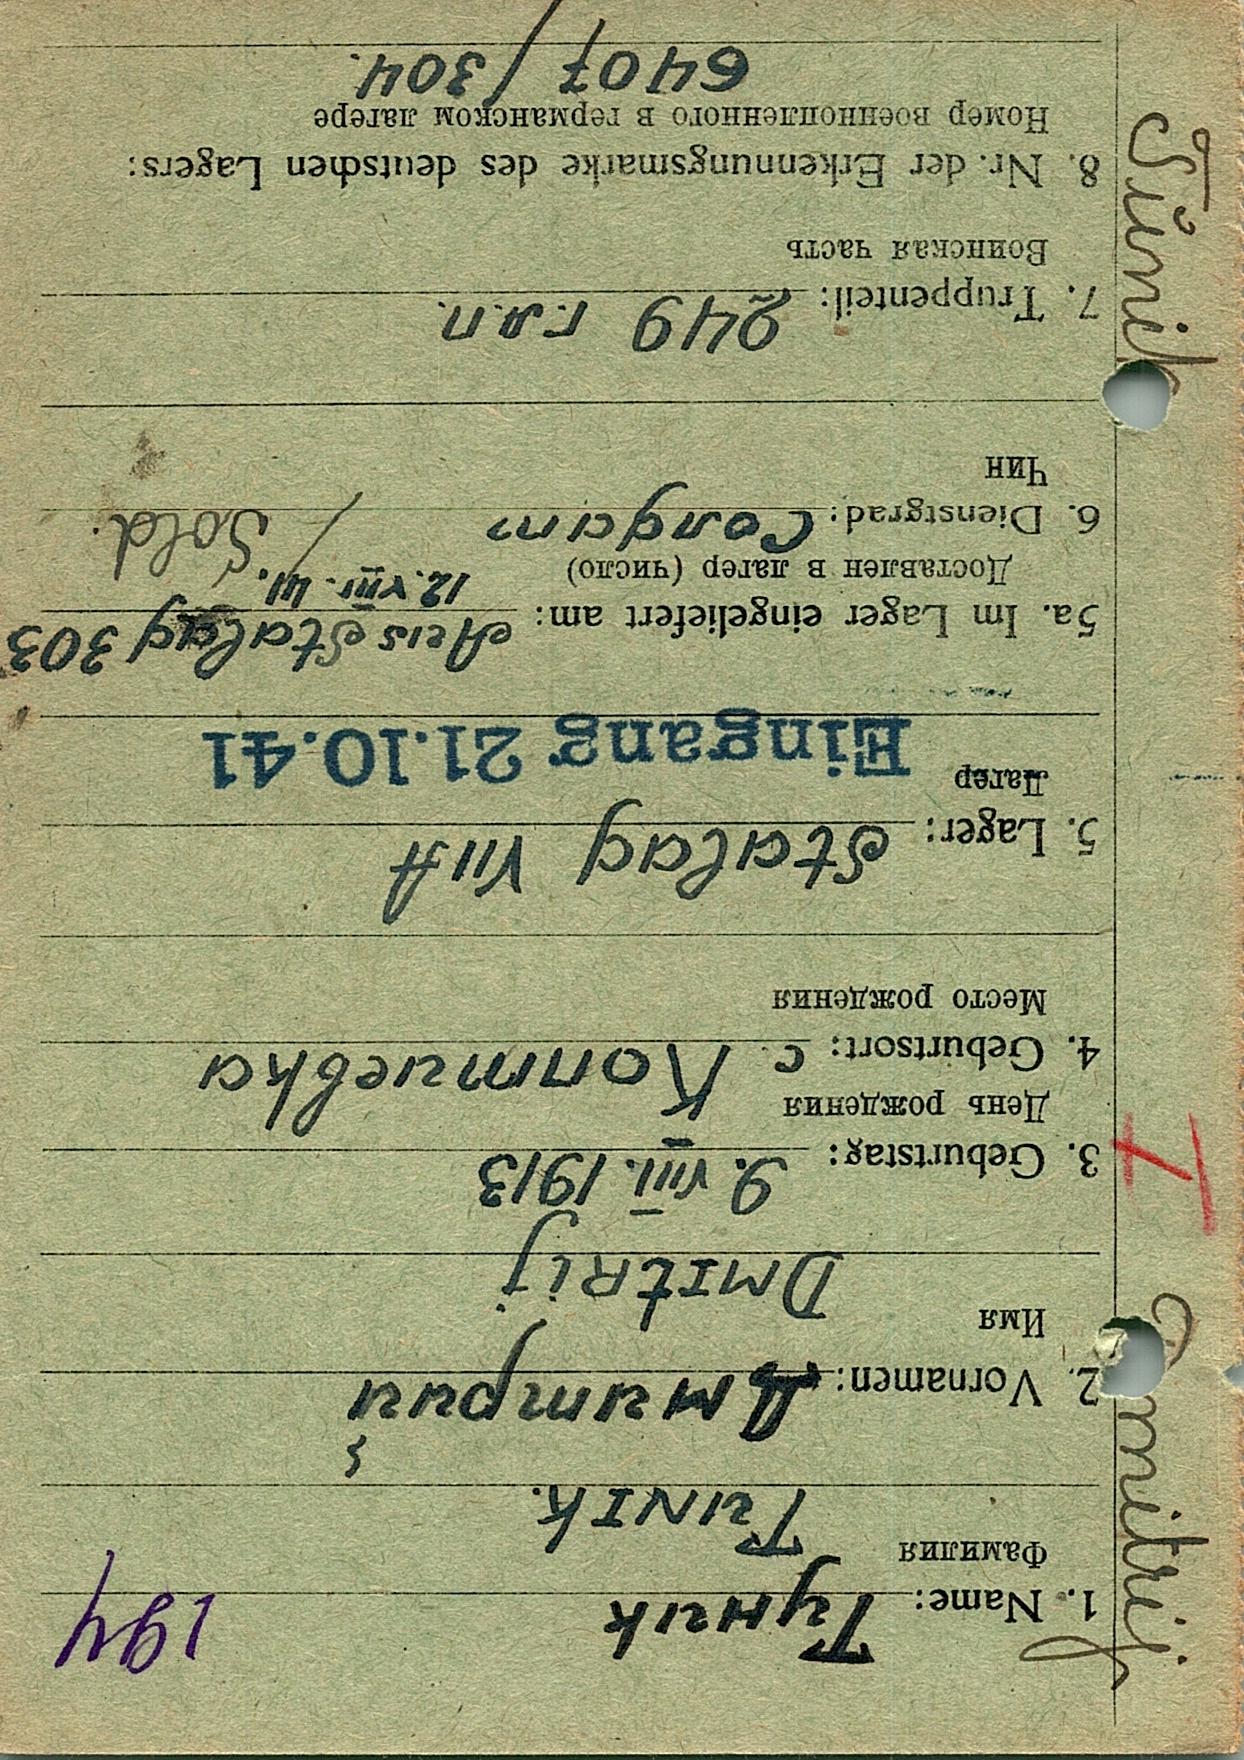 194
1. Name: Туник
Фамилия
TUNIK.
2. Vornamen: Дмитрий
Имя
DMITRij
3. Geburtstag: 9. VIII. 1913
День рождения
4. Geburtsort: с. Коптиевка
Место рождения
5. Lager: Stalag VII A
Лагер
Eingang 21.10.41
5a. Im Lager eingeliefert am: Aus Stalag 303
12. VIII. 41.
Доставлен в лагер (число)
6. Dienstgrad: Солдат / Sold.
Чин
7. Truppenteil: 249 г.а.п.
Воинская часть
8. Nr. der Erkennungsmarke des deutschen Lagers:
Номер военнопленного в германском лагере
6407/304.
Tünik
Dmitrij